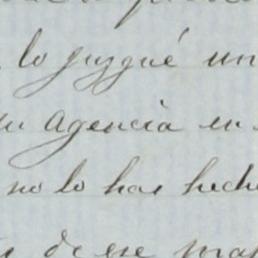 lo juzgué un
su agencia en
no lo has hecho
de ese mas